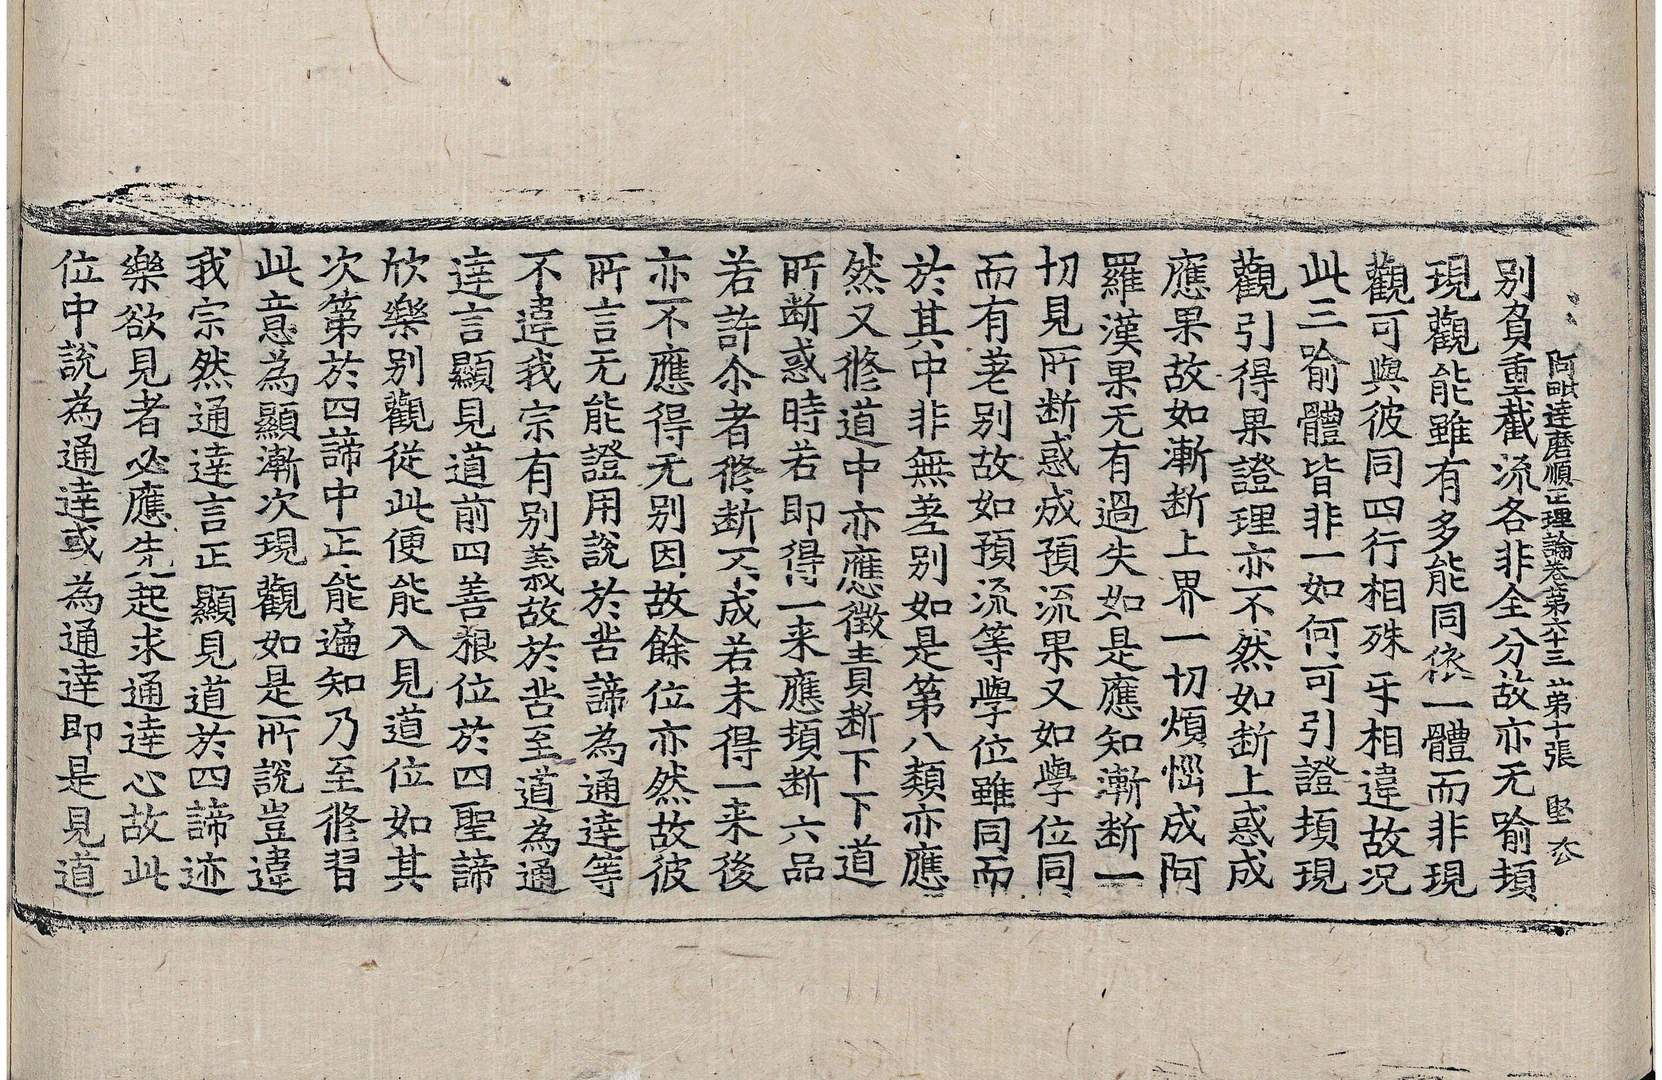 阿毗達磨順正理論卷第六十三 第十張 堅 厺
別負重截流各非全分故亦无喻頓
現觀能雖有多能同依一體而非現
觀可與彼同四行相殊㸦相違故况
此三喻體皆非一如何可引證頓現
觀引得果證理亦不然如断上惑成
應果故如漸断上界一切煩惱成阿
羅漢果无有過失如是應知漸断一
切見所断惑成預流果又如學位同
而有差别故如預流等學位雖同而
於其中非無差别如是第八類亦應
然又修道中亦應徵責断下下道
所断惑時若即得一来應頓断六品
若許尒者修断不成若未得一来後
亦不應得无别因故餘位亦然故彼
所言无能證用說於苦諦為通達等
不違我宗有别義故於苦至道為通
達言顯見道前四善根位於四聖諦
欣樂别觀從此便能入見道位如其
次第於四諦中正能遍知乃至修習
此意為顯漸次現觀如是所說豈違
我宗然通達言正顯見道於四諦迹
樂欲見者必應先起求通達心故此
位中說為通達或為通達即是見道